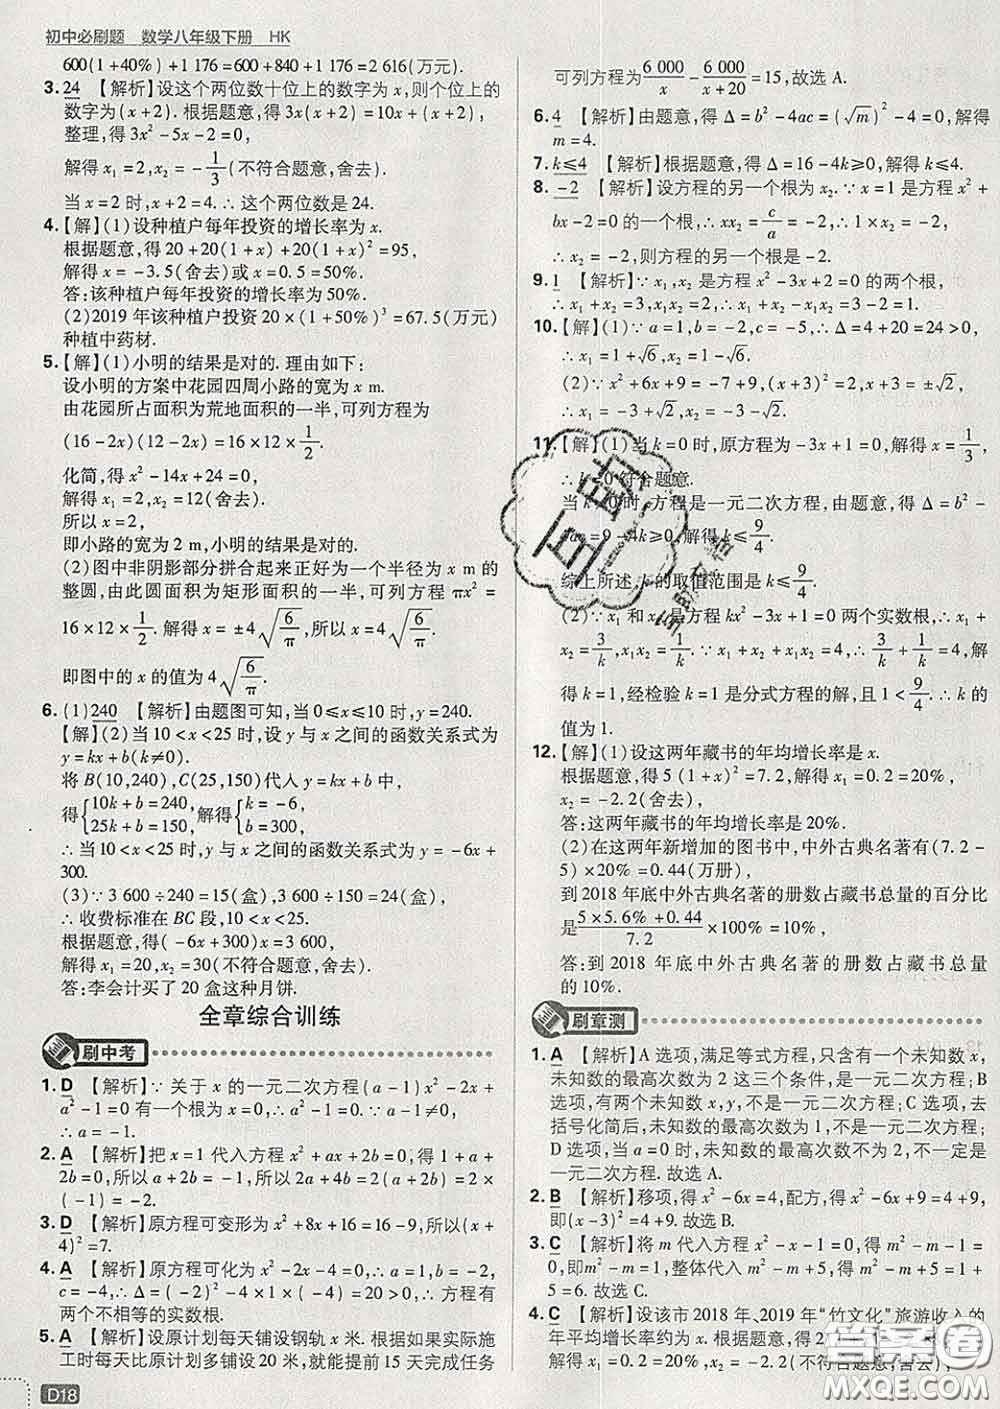 初中必刷题 数学八年级下册 HK
600(1+40%)+1 176=600+840+1 176=2 616(万元).
3. 24 【解析】设这个两位数十位上的数字为 x,则个位上的
数字为(x+2). 根据题意,得 3x(x+2)=10x+(x+2),
整理,得 3x²-5x-2=0,
解得 x₁=2,x₂=-1/3(不符合题意,舍去).
当 x=2 时,x+2=4. ∴ 这个两位数是 24.
4. 【解】(1)设种植户每年投资的增长率为 x.
根据题意,得 20+20(1+x)+20(1+x)²=95,
解得 x=-3.5(舍去)或 x=0.5=50%.
答:该种植户每年投资的增长率为 50%.
(2)2019 年该种植户投资 20×(1+50%)³=67.5(万元)
种植中药材.
5. 【解】(1)小明的结果是对的. 理由如下:
设小明的方案中花园四周小路的宽为 x m.
由花园所占面积为荒地面积的一半,可列方程为
(16-2x)(12-2x)=16×12×1/2.
化简,得 x²-14x+24=0.
解得 x₁=2,x₂=12(舍去).
所以 x=2,
即小路的宽为 2 m,小明的结果是对的.
(2)图中非阴影部分拼合起来正好为一个半径为 x m 的
整圆,由此圆面积为矩形面积的一半,可列方程 πx²=
16×12×1/2. 解得 x=±4√(6/π),所以 x=4√(6/π).
即图中的 x 的值为 4√(6/π).
6. (1)240 【解析】由题图可知,当 0≤x≤10 时,y=240.
【解】(2)当 10<x<25 时,设 y 与 x 之间的函数关系式为
y=kx+b(k≠0).
将 B(10,240),C(25,150)代入 y=kx+b 中,
得{10k+b=240, 25k+b=150,解得{k=-6, b=300.
∴ 当 10<x<25 时,y 与 x 之间的函数关系式为 y=-6x+
300.
(3)∵ 3 600÷240=15(盒),3 600÷150=24(盒),
∴ 收费标准在 BC 段,10<x<25.
根据题意,得(-6x+300)x=3 600,
解得 x₁=20,x₂=30(不符合题意,舍去).
答:李会计买了 20 盒这种月饼.
全章综合训练
刷中考
1. D 【解析】∵ 关于 x 的一元二次方程(a-1)x²-2x+
a²-1=0 有一个根为 x=0,∴ a²-1=0. ∵ a-1≠0,
∴ a=-1.
2. A 【解析】把 x=1 代入方程 x²+ax+2b=0,得 1+a+
2b=0,所以 a+2b=-1,所以 2a+4b=2(a+2b)=2×
(-1)=-2.
3. D 【解析】原方程可变形为 x²+8x+16=16-9,所以(x+
4)²=7.
4. A 【解析】原方程可化为 x²-2x-4=0,∴ a=1,b=-2,
c=-4,∴ Δ=(-2)²-4×1×(-4)=20>0,∴ 方程有
两个不相等的实数根.
5. A 【解析】设原计划每天铺设钢轨 x 米. 根据如果实际施
工时每天比原计划多铺设 20 米,就能提前 15 天完成任务
D18
可列方程为6 000/x-6 000/(x+20)=15,故选 A.
6. 4 【解析】由题意,得 Δ=b²-4ac=(√m)²-4=0,解得
m=4.
7. k≤4 【解析】根据题意,得 Δ=16-4k≥0,解得 k≤4.
8. -2 【解析】设方程的另一个根为 x₂.∵ x=1 是方程 x²+
bx-2=0 的一个根,∴ xx₂=c/a=-2,∴ 1×x₂=-2,
∴ x₂=-2,则方程的另一个根是-2.
9. 1 【解析】∵ x₁,x₂ 是方程 x²-3x+2=0 的两个根,
∴ x₁+x₂=3,x₁x₂=2,∴ x₁+x₂-x₁x₂=3-2=1.
10. 【解】(1)∵ a=1,b=-2,c=-5,∴ Δ=4+20=24>0,
∴ x₁=1+√6,x₂=1-√6.
(2)∵ x²+6x+9=-7+9,(x+3)²=2,∴ x+3=±√2,
∴ x₁=-3+√2,x₂=-3-√2.
11. 【解】(1)当 k=0 时,原方程为-3x+1=0,解得 x=1/3,
∴ k=0 符合题意.
当 k≠0 时,方程是一元二次方程,由题意,得 Δ=b²-
4ac=9-4k≥0,解得 k≤9/4.
综上所述,k 的取值范围是 k≤9/4.
(2)∵ x₁ 和 x₂ 是方程 kx²-3x+1=0 的两个实数根,∴ x₁+
x₂=3/k,x₁x₂=1/k. ∵ x₁+x₂+x₁x₂=4,∴ 3/k+1/k=4,解
得 k=1,经检验 k=1 是分式方程的解,且 1<9/4. ∴ k 的
值为 1.
12. 【解】(1)设这两年藏书的年均增长率是 x.
根据题意,得 5(1+x)²=7.2,解得 x₁=0.2=20%,
x₂=-2.2(舍去).
答:这两年藏书的年均增长率是 20%.
(2)在这两年新增加的图书中,中外古典名著有(7.2-
5)×20%=0.44(万册),
到 2018 年底中外古典名著的册数占藏书总量的百分比
是(5×5.6%+0.44)/7.2×100%=10%,
答:到 2018 年底中外古典名著的册数占藏书总量
的 10%.
刷章测
1. A 【解析】A 选项,满足等式方程,只含有一个未知数 x,
未知数的最高次数为 2 这三个条件,是一元二次方程;B
选项,有两个未知数 x,y,不是一元二次方程;C 选项,去
括号化简后,未知数的最高次数为1,不是一元二次方程;
D 选项,当 a=0 时,未知数的最高次数不为 2,不一定是
一元二次方程. 故选 A.
2. B 【解析】移项,得 x²-6x=4,配方,得 x²-6x+9=4+9,
即(x-3)²=4+9. 故选 B.
3. C 【解析】将 m 代入方程 x²-x-1=0,得 m²-m-1=
0,即m²-m=1,整体代入 m²-m+5,得 m²-m+5=1+
5=6. 故选 C.
4. C 【解析】设该市 2018 年、2019 年“竹文化”旅游收入的
年平均增长率约为 x.
(不符合题意,舍去).
答案圈
MXQE.COM